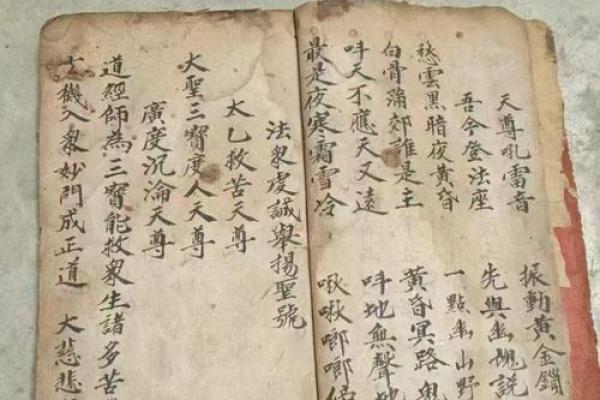 天尊吼雷音 振動黃金鎖
吾今登法座 先與幽魂說
愁雲黑暗夜黃昏 一點幽山野
白骨滿郊誰是主 黃昏冥路鬼
吽天不應天又遠 吽地無聲地
最是夜寒霜雪冷 啾啾啷啷
法眾虔誠舉揚聖號
太乙救苦天尊
大聖三寶度人天尊
廣度沉淪天尊
道經師為三寶能救眾生諸多苦
機入眾妙門成正道 大悲悲